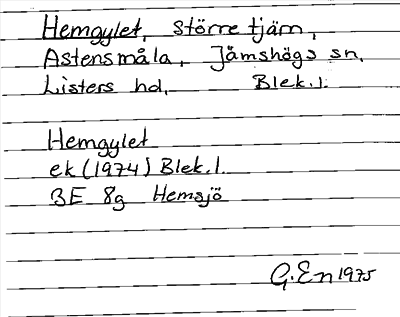 Hemgylet, större tjärn,
Astensmåla, Jämshögs sn.
Listers hd. Blek.l.
Hemgylet
ek (1974) Blek.l.
3E 8g Hemsjö
G.En 1975